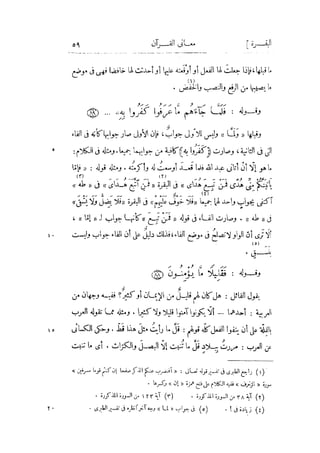 البقرة ] معانى القرآن ٥٩
ما قبلها، فإذا جعلت لها الفعل أو أوقعته عليها أو أحدثت لها خافضا فهى فى موضع
ما يصيبها من الرفع والنصب والخفض .
وقوله : فَلَمَّا جَآءَهُم مَّا عَرَفُوا كَفَرُوا بِهِۦ ... (٨٩)
وقبلها « وَلَمَّا » وليس للأولى جواب، فإن الأولى صار جوابها كأنه فى الفاء
التى فى الثانية، وصارت ﴿ كَفَرُوا بِهِ ﴾ كافية من جوابهما جميعا. ومثله فى الكلام :
ما هو إلّا أن أتانى عبد الله فلما قعد أوسعت له وأكرمته . ومثله قوله : « فَإِمَّا
يَأْتِيَنَّكُمْ مِنِّى هُدًى فَمَنْ تَبِعَ هُدَاىَ » فى البقرة « فَمَنِ اتَّبَعَ هُدَاىَ » فى « طه »
اكتفى بجواب واحد لهما جميعا « فَلَا خَوْفٌ عَلَيْهِمْ » فى البقرة « فَلَا يَضِلُّ وَلَا يَشْقَى »
فى « طه » . وصارت الفاء فى قوله « فَمَنْ تَبِعَ » كأنها جواب لـ « إمّا » ،
ألا ترى أن الواو لا تصلح فى موضع الفاء، فذلك دليل على أن الفاء جواب وليست
بنسق .
وقوله : فَقَلِيلًا مَّا يُؤْمِنُونَ (٨٨)
يقول القائل : هل كان لهم قليل من الإيمان أو كثير ؟ ففيه وجهان من
العربية : أحدهما — ألّا يكونوا آمنوا قليلا ولا كثيرا . ومثله مما تقوله العرب
بالقلة على أن ينفوا الفعل كله قولهم : قلّ ما رأيت مثل هذا قط . وحكى الكسائى
عن العرب : مررت ببلاد قلّ ما تنبت إلّا البصل والكرّاث . أى ما تنبت
(٢) آية ٣٨ من السورة المذكورة . (٣) آية ١٢٣ من السورة المذكورة .
(٤) زيادة فى أ . (٥) فى جواب « لما » وجه آخر انظره فى تفسير الطبرى .